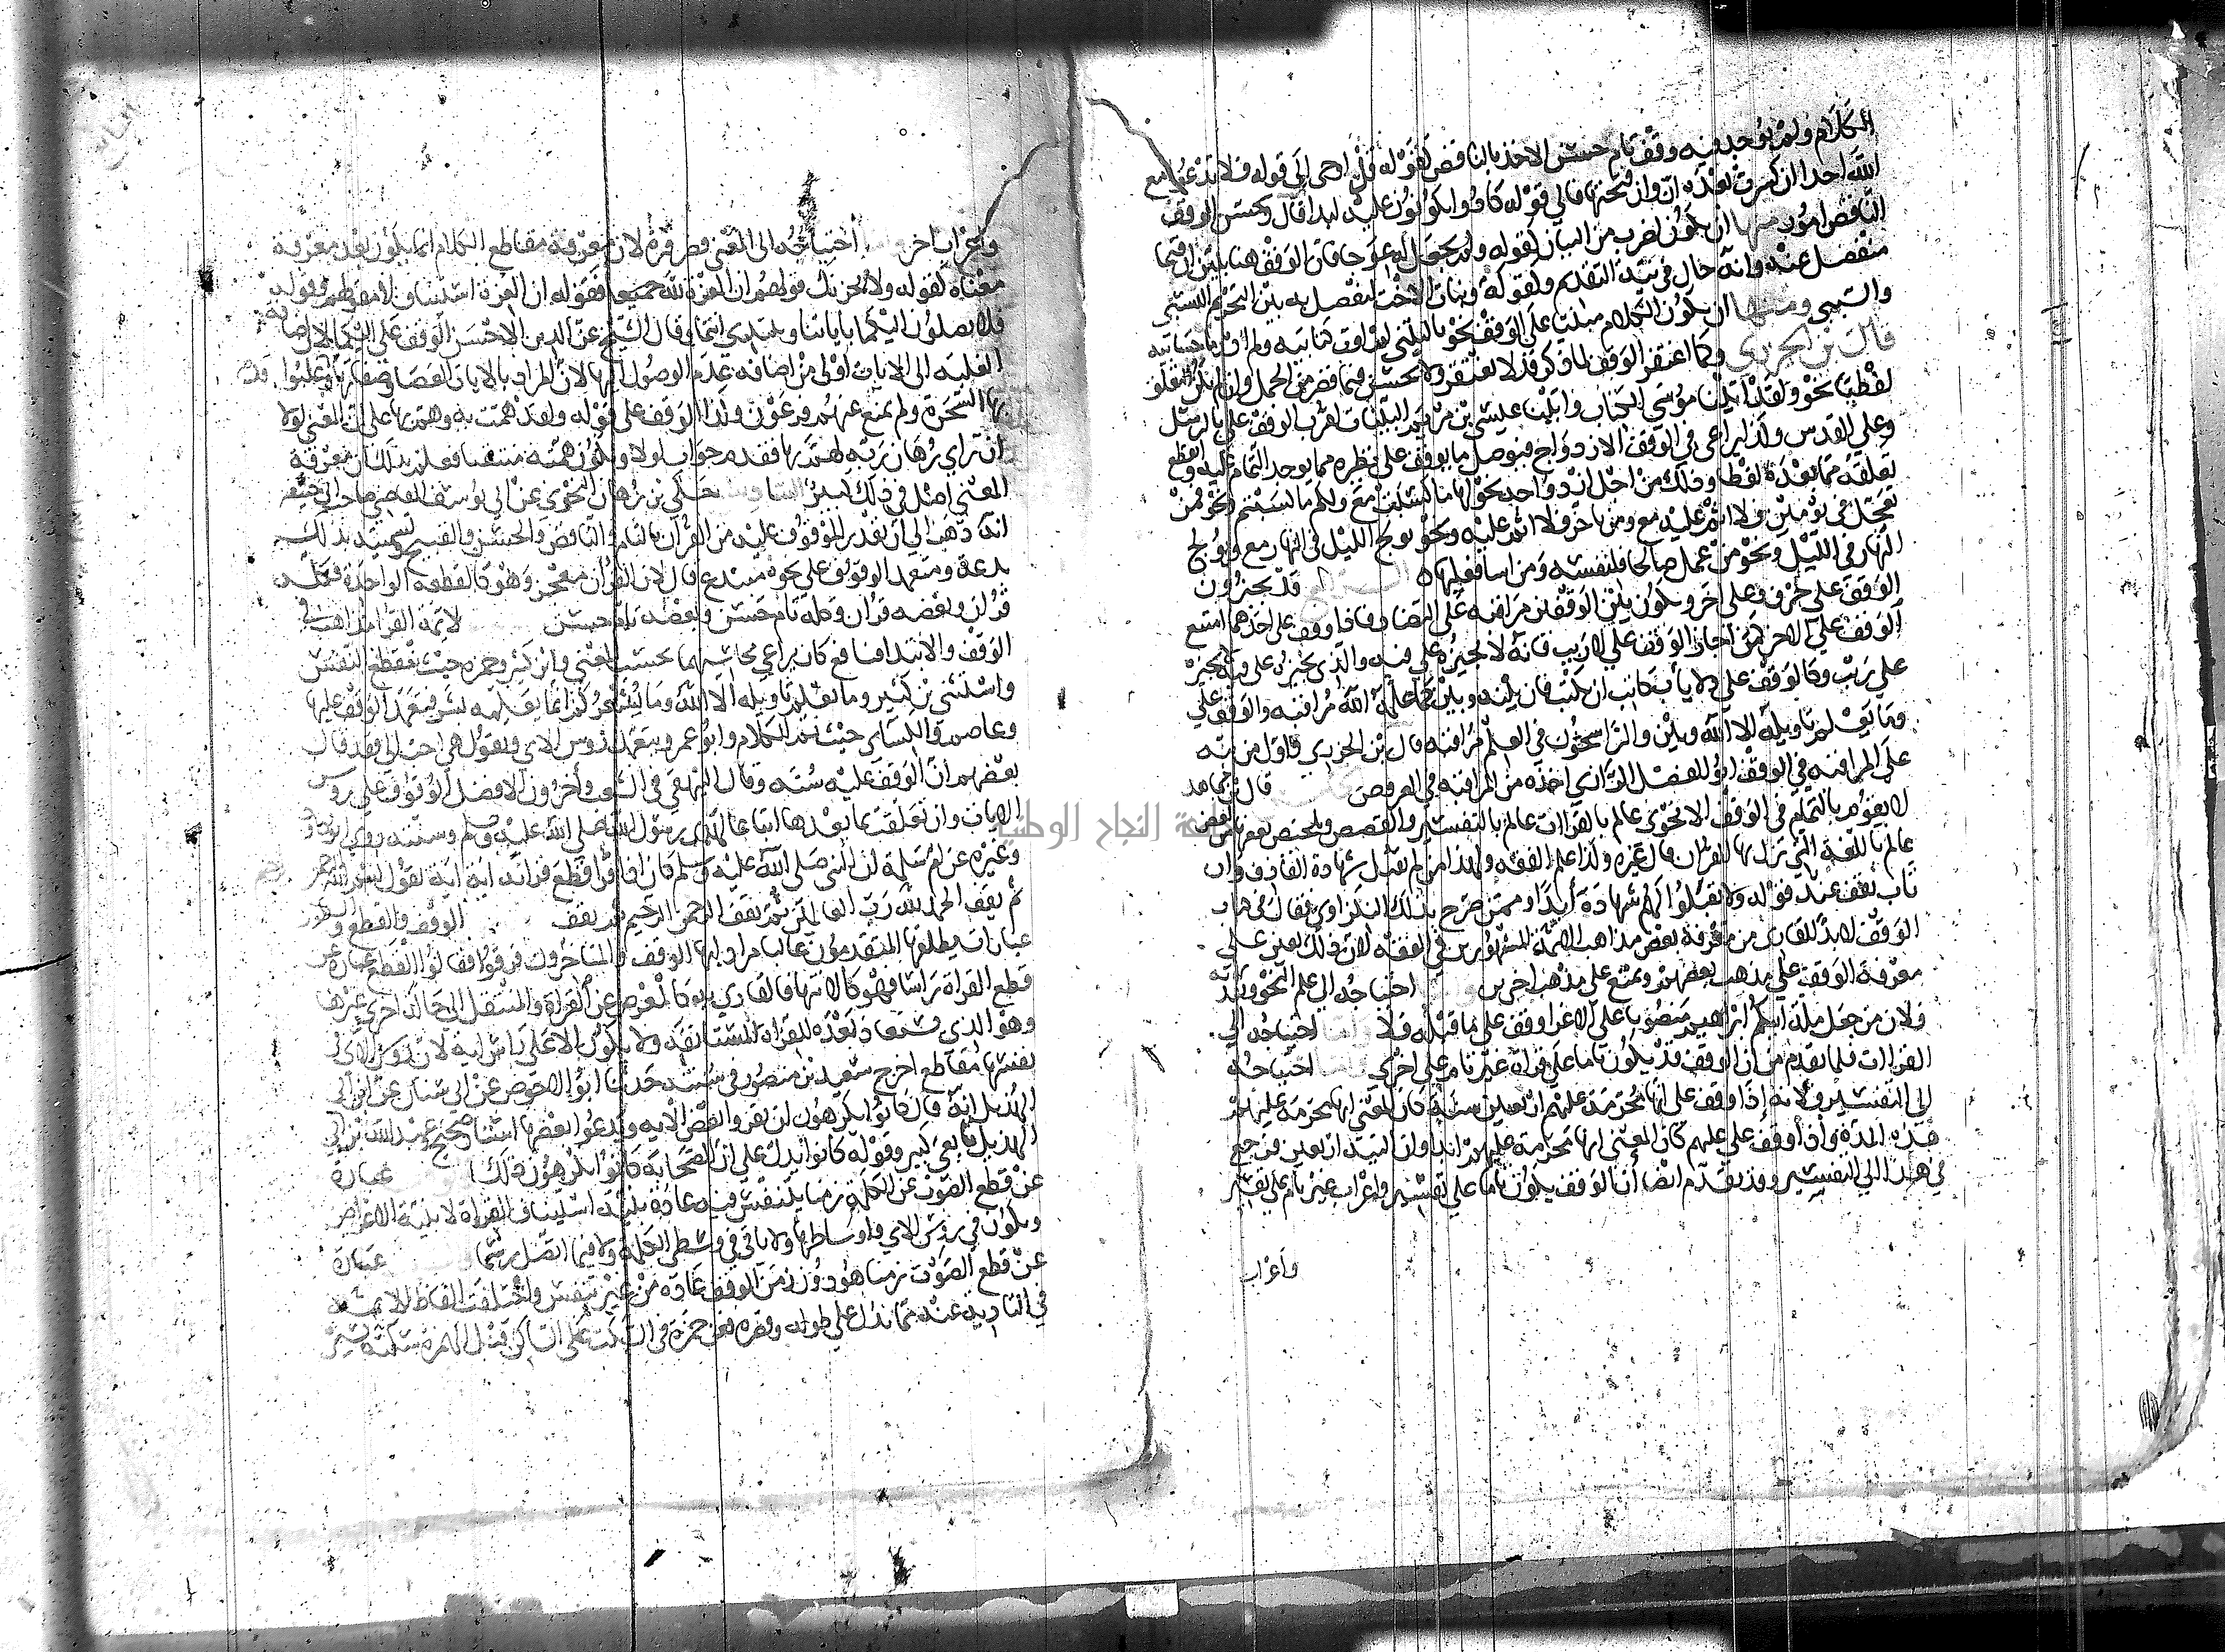 الكلام ولم يوجد فيه وقف تام حسن الاخذ بالناقص لقوله قل اوحي الى قوله فلا تدعوا مع
الله احدا ان كسرت بعده ان وان فتحتها فالى قوله كادوا يكونون عليه لبدا قال ويحسن الوقف
الناقص امور منها ان يكون لضرب من البيان لقوله ولم يجعل له عوجا فان الوقف هنا يبين ان قيما
منفصل عنه وانه حال في نية التقديم ولقوله وبنات الاخت ليفصل به بين التحريم النسبي
والسببي ومنها ان يكون الكلام مبنيا على الوقف نحو يا ليتني لم اوت كتابيه ولم ادر ما حسابيه
قال بن الجزري وكما اغتفر الوقف لما ذكر قد لا يغتفر ولا يحسن فيما قصر من الجمل وان لم يكن التعلق
لفظيا نحو ولقد اتينا موسى الكتاب واتينا عيسى بن مريم البينات لقرب الوقف على بالرسل
وعلى القدس ولذا يراعى في الوقف الازدواج فيوصل ما يوقف على نظيره مما يوجد التمام عليه وانقطع
تعلقه مما بعده لفظا وذلك من اجل ازدواجه نحو لها ما كسبت مع ولكم ما كسبتم ونحو فمن
تعجل في يومين فلا اثم عليه مع ومن تاخر فلا اثم عليه ونحو يولج الليل في النهار مع ويولج
النهار في الليل ونحو من عمل صالحا فلنفسه ومن اسا فعليها قد يجيزون
الوقف على حرف وعلى اخر ويكون بين الوقفين مراقبة على التضاد فاذا وقف على احدهما امتنع
الوقف على الاخر كمن اجاز الوقف على لا ريب فانه لا يجيزه على فيه والذي يجيزه على فيه لا يجيزه
على ريب وكالوقف على ولا ياب كاتب ان يكتب فان بينه وبين كما علمه الله مراقبة والوقف على
وما يعلم تاويله الا الله وبين والراسخون في العلم مراقبة قال بن الجزري واول من نبه
على المراقبة في الوقف ابو الفضل الرازي اخذه من المراقبة في العروض قال بن مجاهد
لا يقوم بالتمام في الوقف الا نحوي عالم بالقراات عالم بالتفسير والقصص وتلخيص بعضها من بعض
عالم باللغة التي نزل بها القران قال غيره ولذا علم الفقه ولهذا من لم يقبل شهادة القاذف وان
تاب يقف عند قوله ولا تقبلوا لهم شهادة أبدا وممن صرح بذلك النكزاوي فقال في كتاب
الوقف لابد للقارى من معرفة بعض مذاهب الايمة المشهورين في الفقه لان ذلك يعين على
معرفة الوقف على مذهب بعضهم ويمتنع على مذهب اخرين احتياجه الى علم النحو وتقديراته
فلان من جعل ملة ابيكم ابرهيم منصوبا على الاغرا وقف على ما قبله فلا احتياجه الى
القراات فلما تقدم من ان الوقف قد يكون تاما على قراة غير تام على اخرى احتياجه
الى التفسير فلانه اذا وقف على انها محرمة عليهم اربعين سنة كان المعنى انها محرمة عليهم
هذه المدة واذا وقف على عليهم كان المعنى انها محرمة عليهم ابدا وان التيه اربعين فرجع
في هذا الى التفسير وقد تقدم ايضا أن الوقف يكون تاما على تفسير واعراب غير تام على تفسير
وأعراب
واعراب اخر احتياجه الى المعنى فضرورة لان معرفة مقاطع الكلام انما يكون بعد معرفة
معناه لقوله ولا يحزنك قولهم ان العزة لله جميعا فقوله ان العزة استيناف لا مقولهم وقوله
فلا يصلون اليكما باياتنا ويبتدى انتما وقال الشيخ عز الدين الاحسن الوقف على اليكما لان اضافة
الغلبة الى الايات اولى من اضافة عدم الوصول اليها لان المراد بالايات العصا وصفاتها وقد غلبوا
بها السحرة ولم تمنع عنهم فرعون وكذا الوقف على قوله ولقد همت به وهم بها على ان المعنى لولا
ان راى برهان ربه لهم بها فقدم جواب لولا ويكون همه منتفيا فعلم بذلك ان معرفة
المعنى اصل في ذلك كبير حكى بن برهان النحوي عن ابي يوسف القاضي صاحب ابي حنيفة
انه ذهب الى ان تقدير الموقوف عليه من القرآن بالتام والناقص والحسن والقبيح وتسميته بذلك
بدعة ومتعمد الوقوف على نحوه مبتدع قال لان القران معجز وهو كالقطعة الواحدة فكله
قران وبعضه قران وكله تام حسن وبعضه تام حسن لائمة القرا مذاهب في
الوقف والابتدا فنافع كان يراعي محاسنهما بحسب المعنى وابن كثير وحمزة حيث ينقطع النفس
واستثنى بن كثير وما يعلم تاويله الا الله وما يشعركم انما يعلمه بشر فتعمد الوقف عليها
وعاصم والكسائي حيث تم الكلام وابو عمرو يتعمد رؤس الاى ويقول هي احب الي فقد قال
بعضهم ان الوقف عليه سنة وقال البيهقي في الشعب وآخرون الافضل الوقوف على رؤس
الايات وان تعلقت بما بعدها اتباعا لهدي رسول الله صلى الله عليه وسلم وسنته روى ابو داود
وغيره عن ام سلمة ان النبي صلى الله عليه وسلم كان اذا قرا قطع قراته اية اية يقول بسم الله الرحمن
ثم يقف الحمد لله رب العالمين ثم يقف الرحمن الرحيم ثم يقف الوقف والقطع و
عبارات يطلقها المتقدمون غالبا مرادا بها الوقف والمتاخرون فرقوا فقالوا القطع عبارة عن
قطع القراة راسا فهو كالانتها فالقاري به كالمعرض عن القراة والمنتقل الى حالة اخرى غيرها
وهو الذي يستعاذ بعده للقراة المستانفة ولا يكون الا على راس اية لان رؤس الاى في
نفسها مقاطع اخرج سعيد بن منصور في سننه حدثنا ابو الاحوص عن ابي سنان عن ابن ابي
الهذيل انه قال كانوا يكرهون ان يقرؤا بعض الاية ويدعوا بعضها اسناد صحيح عبد الله بن ابي
الهذيل تابعي كبير وقوله كانوا يدل على ان الصحابة كانوا يكرهون ذلك عبارة
عن قطع الصوت عن الكلمة زمنا يتنفس فيه عادة بنية استيناف القراة لا بنية الاعراض
ويكون في رؤس الاى واوساطها ولا ياتي في وسط الكلمة ولا فيما اتصل رسما عبارة
عن قطع الصوت زمنا هو دون زمن الوقف عادة من غير تنفس واختلفت الفاظ الايمة
في التادية عنه مما يدل على طوله وقصره فعن حمزة في السكت على الساكن قبل الهمزة سكتة يسيرة
جامعة النجاح الوطنية